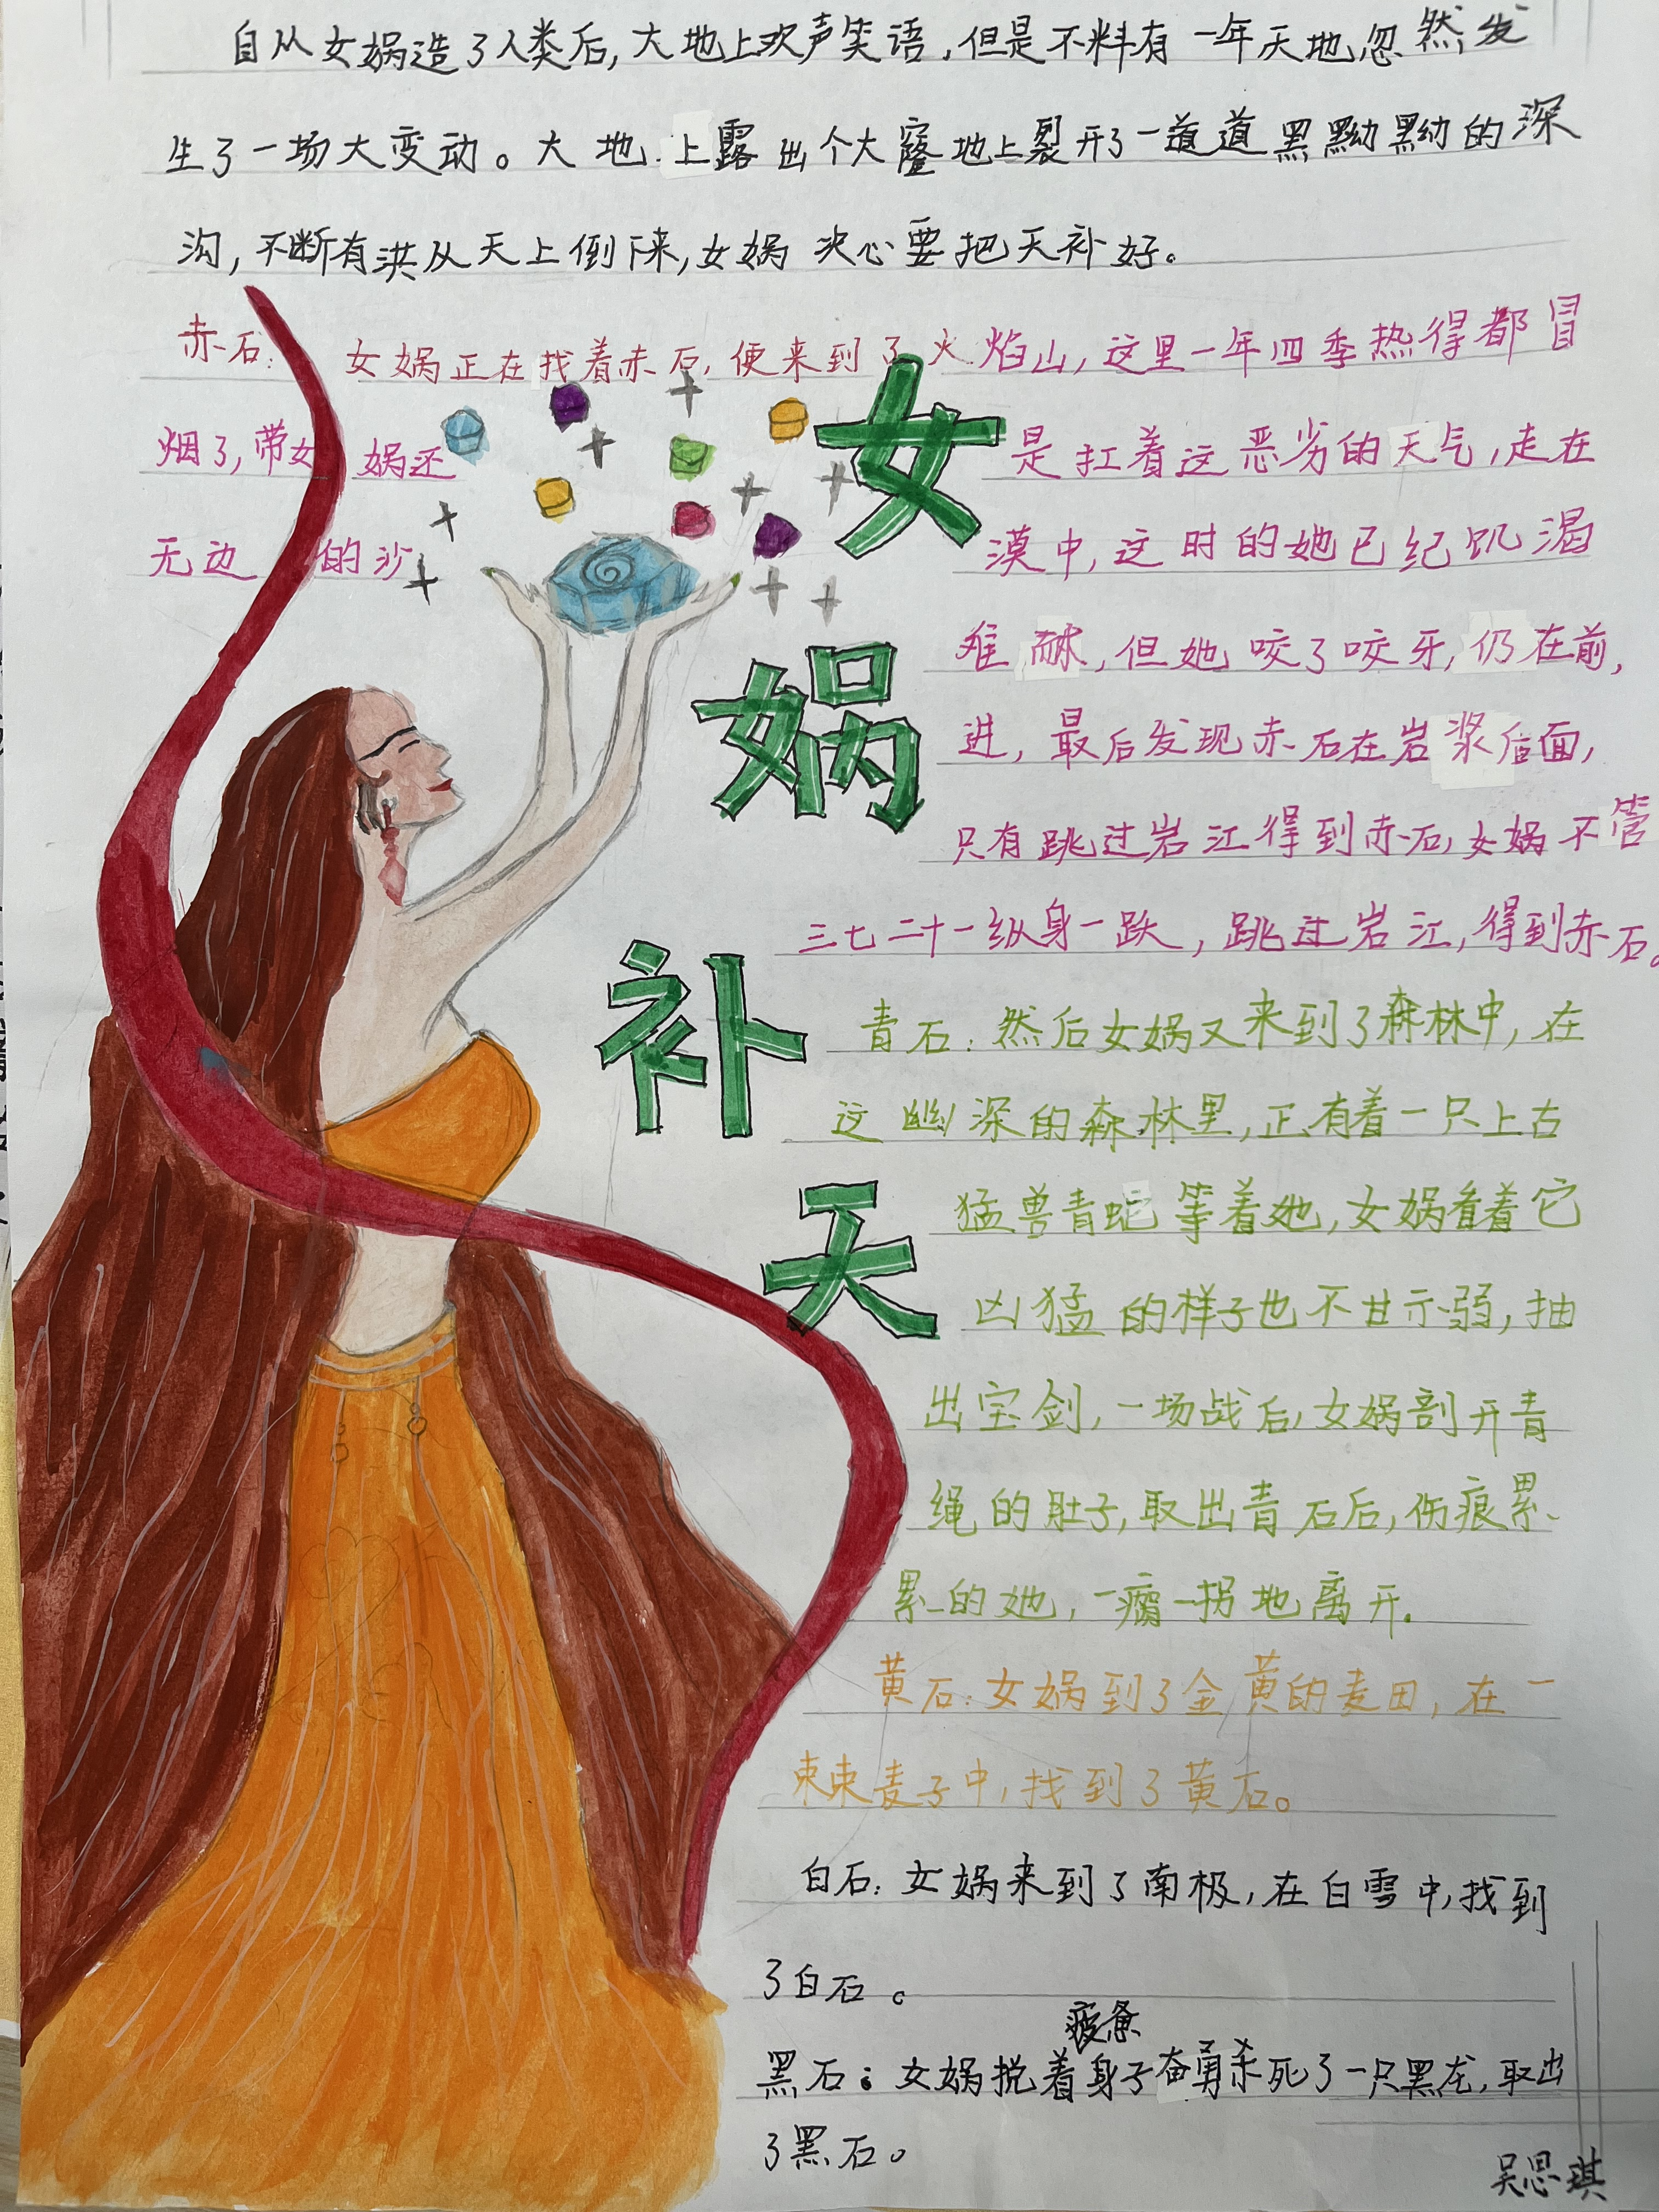 自从女娲造了人类后,大地上欢声笑语,但是不料有一年天地忽然发
生了一场大变动。大地上露出个大窿地上裂开了一道道黑黝黝的深
沟,不断有洪从天上倒下来,女娲决心要把天补好。
赤石:女娲正在找着赤石,便来到了火焰山,这里一年四季热得都冒
烟了,带女娲还是扛着这恶劣的天气,走在
无边的沙漠中,这时的她已纪饥渴
难耐,但她咬了咬牙,仍在前,
进,最后发现赤石在岩浆后面,
只有跳过岩江得到赤石,女娲不管
三七二十一纵身一跃,跳过岩江,得到赤石。
青石:然后女娲又来到了森林中,在
这幽深的森林里,正有着一只上古
猛兽青蛇等着她,女娲看着它
凶猛的样子也不甘示弱,抽
出宝剑,一场战后,女娲剖开青
绳的肚子,取出青石后,伤痕累
累的她,一瘸一拐地离开.
黄石:女娲到了金黄的麦田,在一
束束麦子中,找到了黄石。
白石:女娲来到了南极,在白雪中,找到
了白石。
疲惫
黑石:女娲挩着身子奋勇杀死了一只黑龙,取出
了黑石。
女
娲
补
天
吴思琪